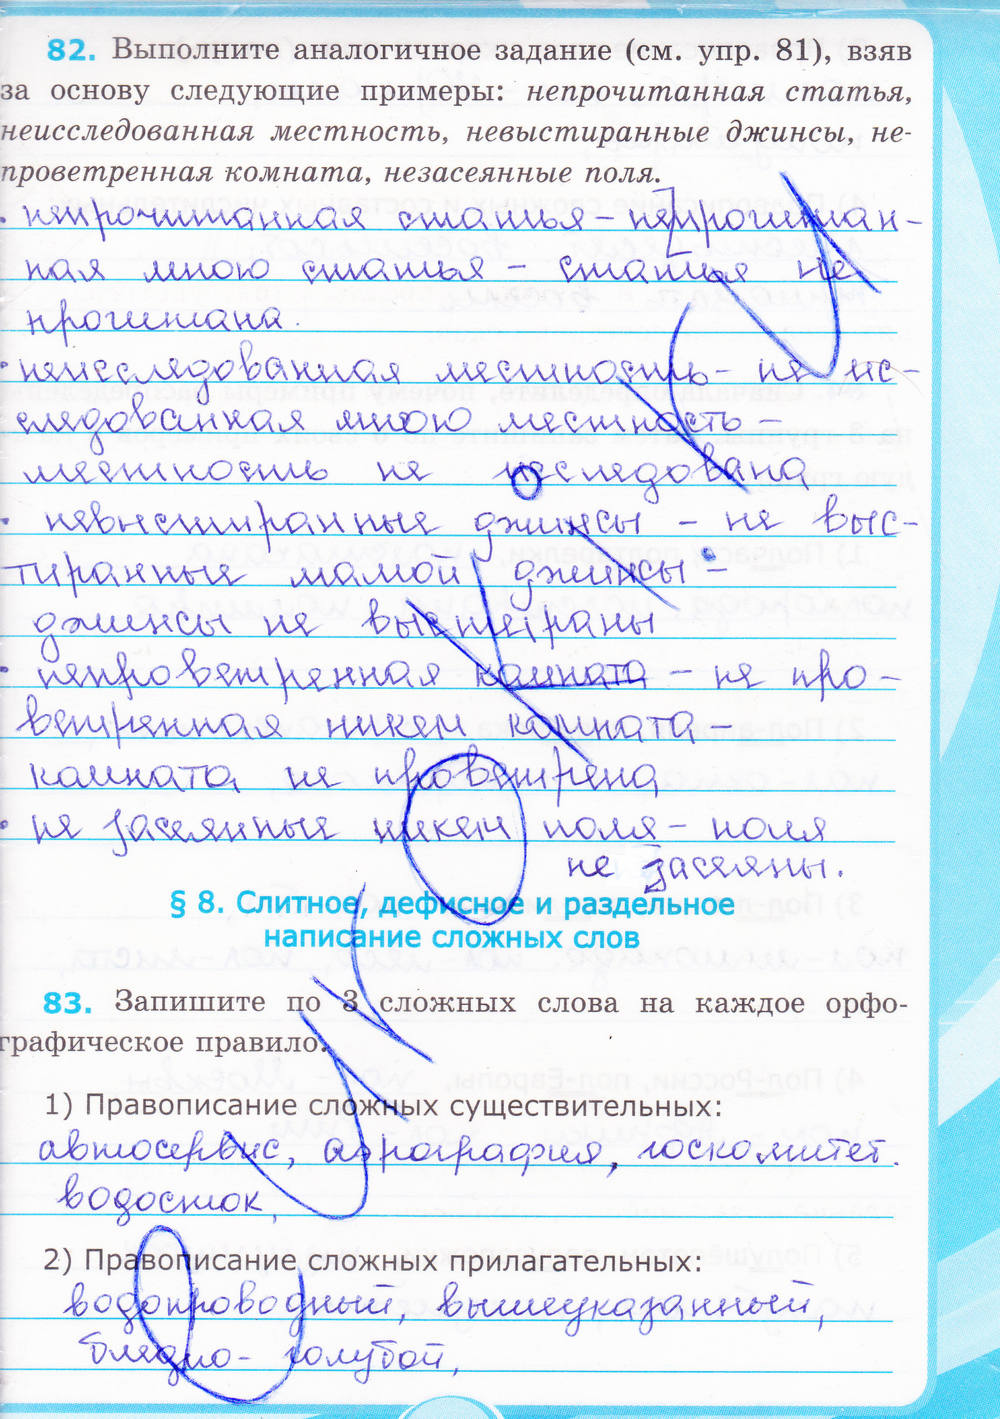 82. Выполните аналогичное задание (см. упр. 81), взяв
за основу следующие примеры: непрочитанная статья,
неисследованная местность, невыстиранные джинсы, не-
проветренная комната, незасеянные поля.
непрочитанная статья – непрочитан-
ная мною статья – статья не
прочитана.
неисследованная местность – не ис-
следованная мною местность –
местность не исследована
невыстиранные джинсы – не выс-
тиранные мамой джинсы –
джинсы не выстираны
непроветренная комната – не про-
ветренная никем комната –
комната не проветрена
не засеянные никем поля – поля
не засеяны.
§ 8. Слитное, дефисное и раздельное
написание сложных слов
83. Запишите по 3 сложных слова на каждое орфо-
графическое правило.
1) Правописание сложных существительных:
автосервис, агрография, госкомитет.
водосток,
2) Правописание сложных прилагательных:
водопроводный, вышеуказанный,
бледно-голубой,